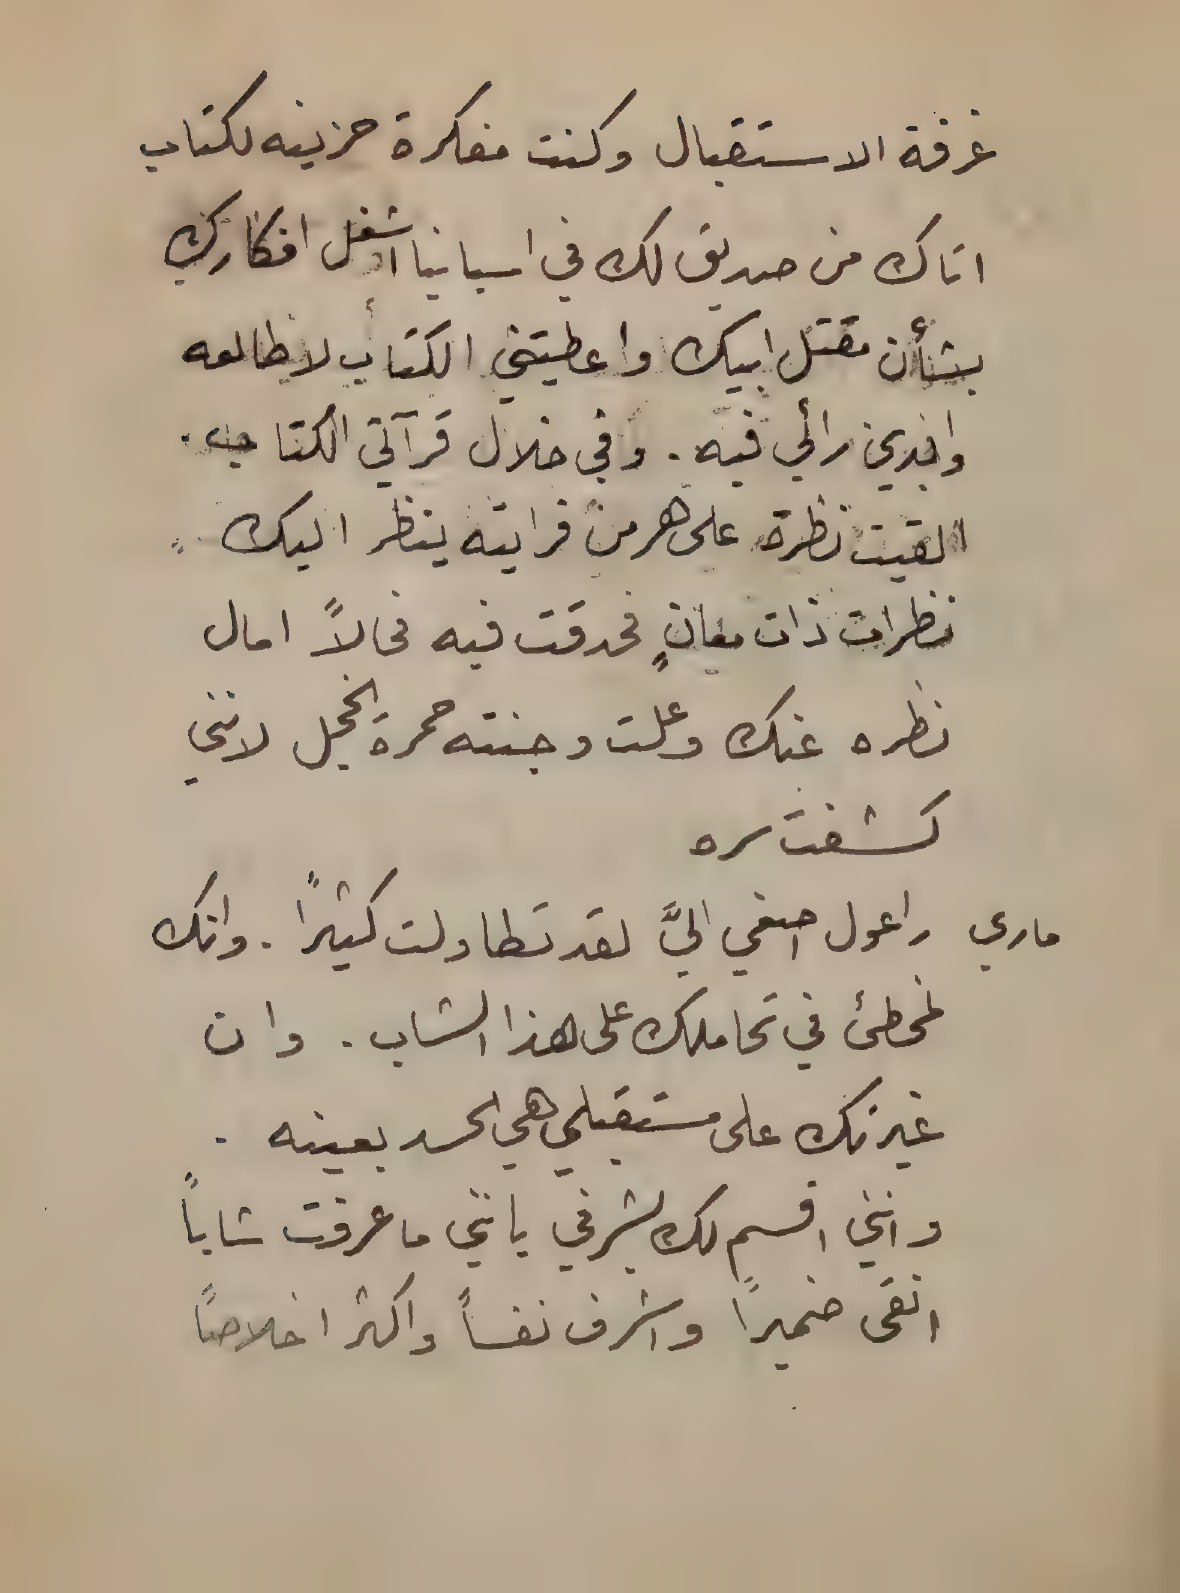 غرفة الاستقبال وكنت مفكرة حزينه لكتاب
اتاك من صديق لك في اسبانيا اشغل افكارك
بشأن مقتل ابيك واعطيتني الكتاب لاطالعه
وابدي رأئي فيه. وفي خلال قرآتي الكتاب.
القيت نظرة على هرمن فرايته ينظر اليك
نظرات ذات معانٍ فحدقت فيه فحالاً امال
نظره عنك وعلت وجنته حمرة الخجل لانني
كشفت سره
ماري راعول اصغي اليَّ لقد تطاولت كثيراً. وانك
لمخطئ في تحاملك على هذا الشاب. وان
غيرتك على مستقبلي هي الحسد بعينه.
وانني اقسم لك بشرفي بانني ما عرفت شاباً
انقى ضميراً واشرف نفساً واكثر اخلاصاً